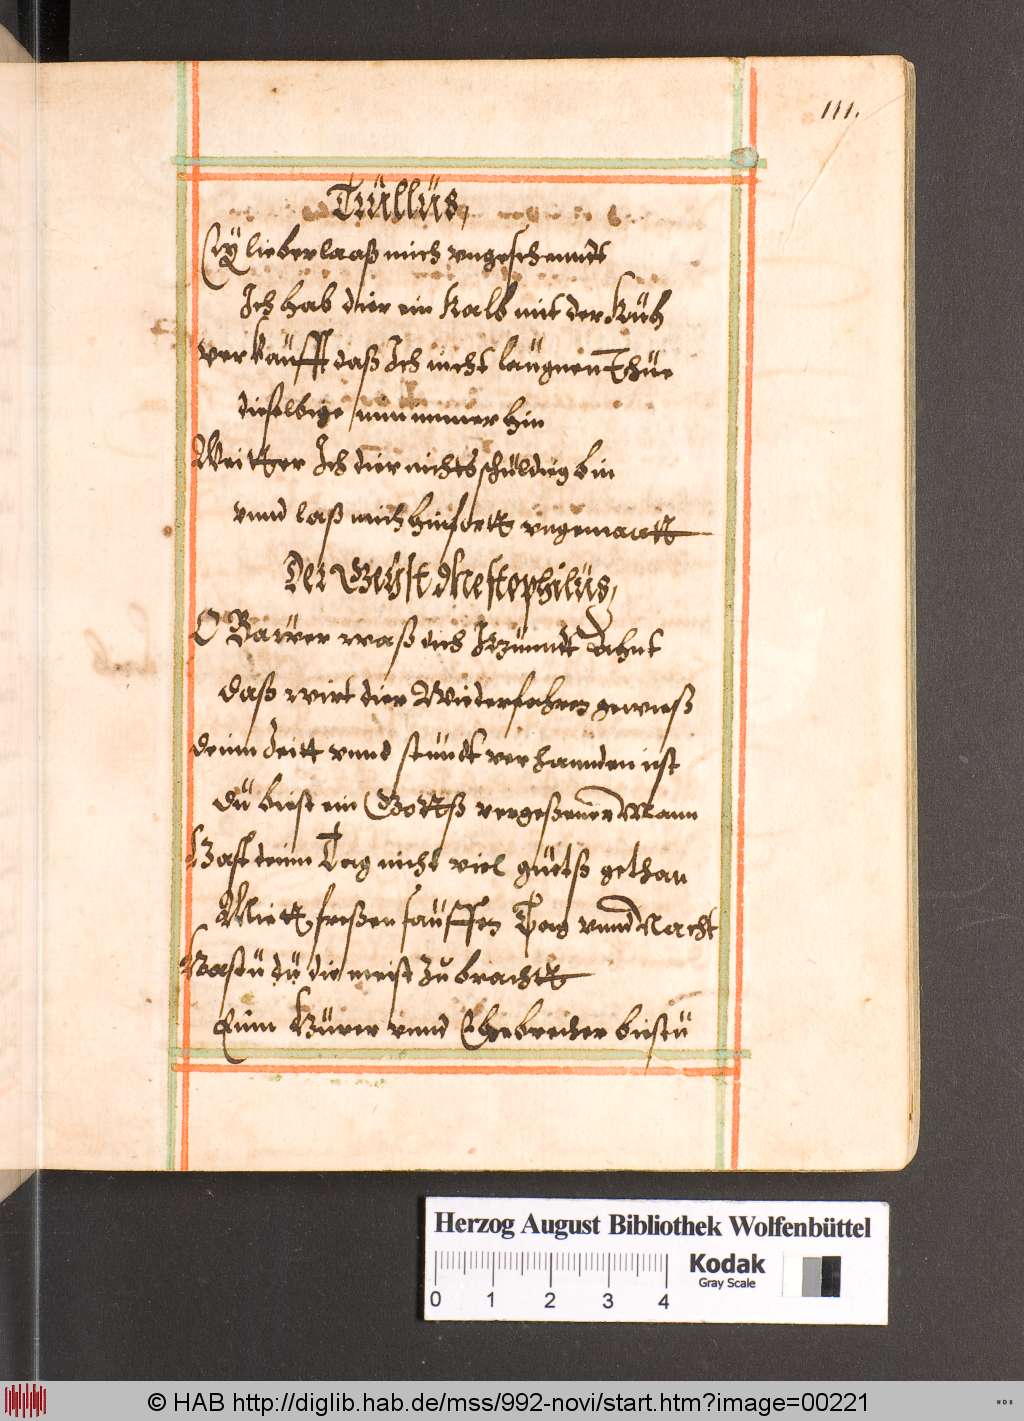 111.
Trüllüs,
Ey lieber laaß mich vngeschenndt
Ich hab dier ein Kalb mit der Küh
verkaüfft daß Ich nicht laügnen Thüe
dieselbige nun immer hin
Weitter Ich dier nichts schüldig bin
vnnd laß mich hinfortt vngemartt
Der Geÿst Mestophilüs,
O Baüer waß dich Itzünndt Ahnt
daß wirt dier Wiederfahren gewieß
deinn Zeitt vnnd stündt verhannden ist
dü biest ein Gottß vergeßener Mann
Hast deinn Tag nicht viel gütß gethan
Miett freßen saüffen Tag vnnd Nacht
Hastü dü die meist Zü bracht
Einn Hürer vnnd Ehebrecher biestü
Herzog August Bibliothek Wolfenbüttel
Kodak
Gray Scale
0 1 2 3 4
© HAB http://diglib.hab.de/mss/992-novi/start.htm?image=00221